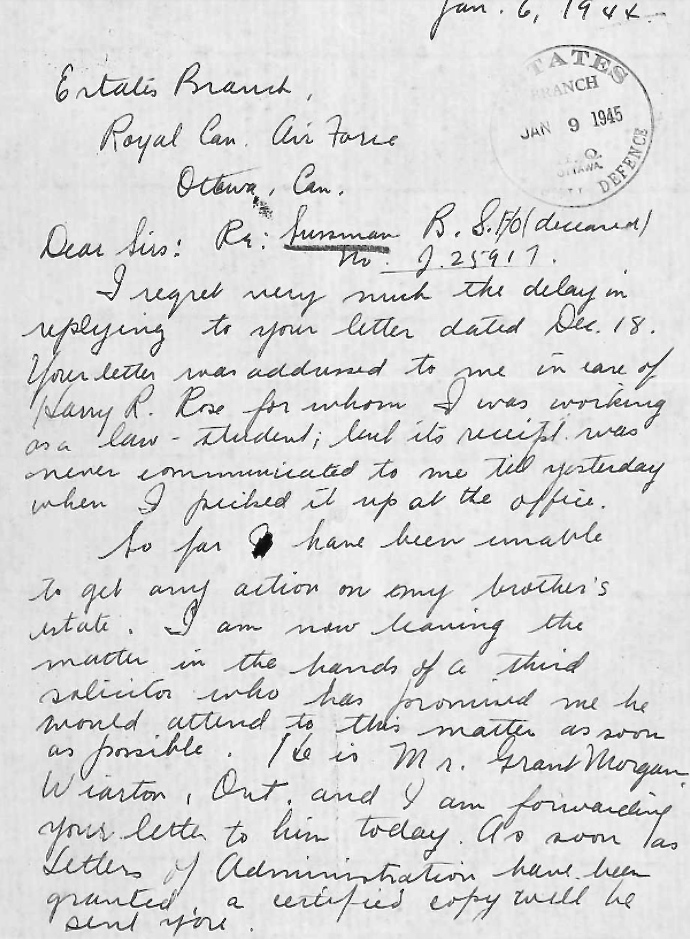 Jan. 6, 1944
Estates Branch,
Royal Can. Air Force
Ottawa, Can.
ESTATES
BRANCH
JAN 9 1945
OTTAWA
DEFENCE
Dear Sirs: Re: Sussman B. S. F/O (deceased)
No. J.25917.
I regret very much the delay in
replying to your letter dated Dec. 18.
Your letter was addressed to me in care of
Harry R. Rose for whom I was working
as a law-student; but its receipt was
never communicated to me till yesterday
when I picked it up at the office.
So far I have been unable
to get any action on my brother's
estate. I am now leaving the
matter in the hands of a third
solicitor who has promised me he
would attend to this matter as soon
as possible. He is Mr. Grant Morgan,
Wiarton, Ont. and I am forwarding
your letter to him today. As soon as
Letters of Administration have been
granted, a certified copy will be
sent you.